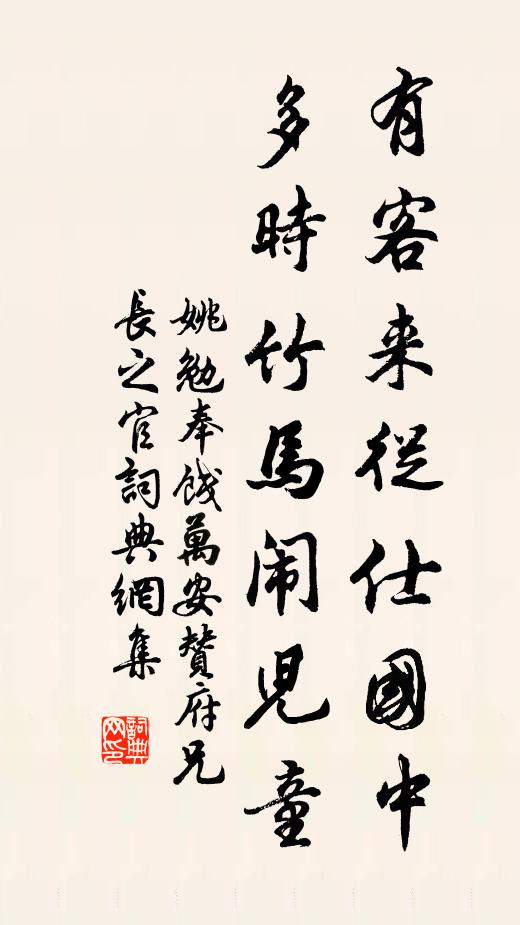 有客来從仕國中
多時竹馬闹児童
姚勉奉餞萬安贊府兄
長之官詞典網集
詞典
网印